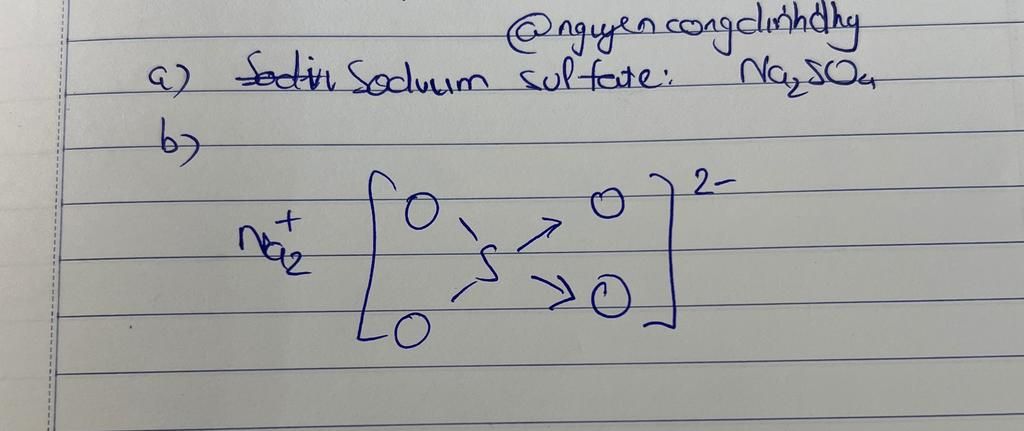 @nguyencongdinhdhy
a) Sodiu Sodium sulfate: Na₂SO₄
b)
Na₂⁺ [O O]²⁻
S
O O